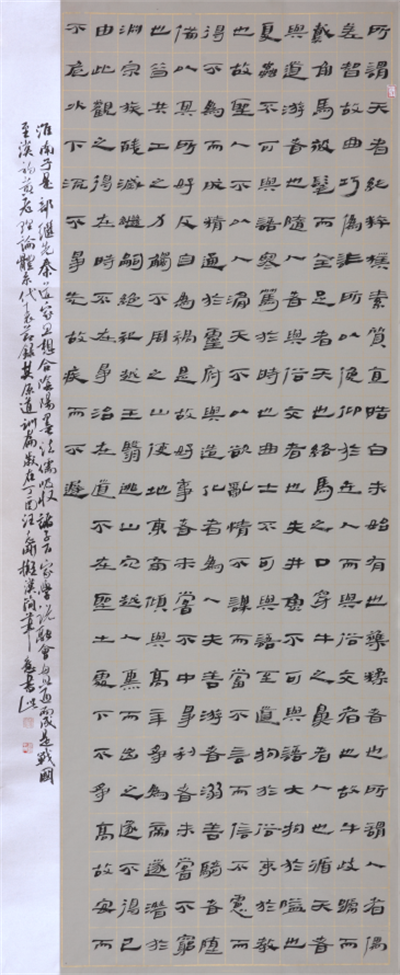 所謂天者純粹樸素質直皓白未始有也雜糅者也所謂人者偶
差智故曲巧偽詐所以俛仰於世人而與俗交者也故牛岐蹏而
戴角馬被髦而全足者天也絡馬之口穿牛之鼻者人也循天者
與道游者也隨人者與俗交者也夫井魚不可與語大拘於隘也
夏蟲不可與語寒篤於時也曲士不可與語至道拘於俗束於教
也故聖人不以人滑天不以欲亂情不謀而當不言而信不慮而
得不為而成精通於靈府與造化者為人夫善游者溺善騎者墮
備以其所好反自為禍是故好事者未嘗不中爭利者未嘗不窮
也昔共工之力觸不周之山使地東南傾與高辛爭為帝遂潛於
淵宗族殘滅繼嗣絕祀越王翳逃山穴越人熏而出之遂不得已
由此觀之得在時不在爭治在道不在聖土處下不爭高故安而
不危水下流不爭先故疾而不遲
淮南子是部繼先秦道家思想合陰陽墨法儒吸收諸子百家學說融會貫通而成是戰國
至漢初黃老理論體系代表節錄其原道訓篇歲在丁酉汪擬漢簡筆意書